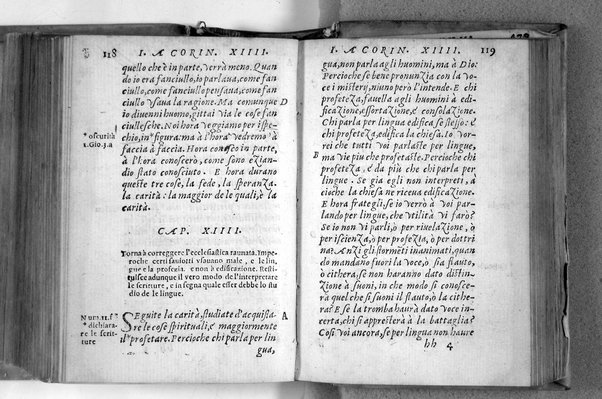 118 I. A CORIN. XIIII.
quello che è in parte, verrà meno. Quan
do io era fanciullo, io parlaua, come fan
ciullo, come fanciullo pensaua, come fan
ciullo vsaua la ragione. Ma comunque D
io diuenni huomo, gittai via le cose fan
ciullesche. Noi hora veggiamo per ispec
chio, in* figura: ma à l'hora vedremo à
faccia à faccia. Hora conosco in parte,
à l'hora conoscerò, come sono ezian-
dio stato conosciuto. E hora durano
queste tre cose, la fede, la speranza,
la carità: la maggior de le quali, è la
carità.
* oscurità
1. Gio. 3. a
CAP. XIIII.
Torna à correggere l'ecclesiastica raunata. Impe-
roche certi sauiotti vsauano male, e le lin
gue e la profetia, e non à edificatione. Resti-
tuisce adunque il vero modo de l'interpretare
le scritture, e insegna qual esser debbe lo stu
dio de le lingue.
SEguite la carità, studiate d'acquista A
re le cose spirituali, e maggiormente
il* profetare. Percioche chi parla per lin
gua,
Num. 11. f*
* dichiara-
re le scrit-
ture
I. A CORIN. XIIII. 119
gua, non parla a gli huomini, ma à Dio:
Percioche se bene pronunzia con la vo-
ce i misterij, niuno però l'intende. E chi
profeteza, fauella agli huomini à edi-
ficazione, essortazione, e consolazione.
Chi parla per lingua edifica se stesso: e
chi profeteza, edifica la chiesa. Io vor-
rei che tutti voi parlaste per lingue,
B ma vie piu che profetaste. Percioche chi
profeteza, è da più che chi parla per
lingue. Se gia egli non interpreti, à
cioche la chiesa ne riceua edificazione.
E hora frategli, se io verrò à voi par-
lando per lingue, che vtilità vi farò?
Se io non vi parli, ò per riuelazione, ò
per iscienza, ò per profezia, ò per dottri
na? Anzi gli stormēti inanimati, quan
do mandano fuori la voce, ò sia flauto,
ò cithera, se non haranno dato distin-
zione à suoni, in che modo si conosce-
rà quel che si suoni il flauto, ò la cithe
ra? E se la tromba haurà dato voce in-
certa, chi si appresterà à la battaglia?
Cosi voi ancora, se per lingua non haure
hh 4